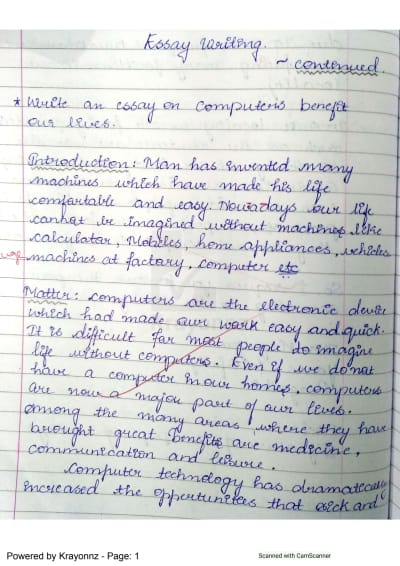 Essay Writing.
~ continued.
* Write an essay on computers benefit
our lives.
Introduction: Man has invented many
machines which have made his life
comfortable and easy. Nowadays our life
cannot be imagined without machines like
calculator, Mobiles, home appliances, vehicles
machines at factory, computer etc
Matter: computers are the electronic device
which had made our work easy and quick.
It is difficult for most people do imagine
life without computers. Even if we do not
have a computer in our homes, computers
are now a major part of our lives.
among the many areas, where they have
brought great benefits are medicine,
communication and leisure.
computer technology has dramatically
increased the opportunities that sick and
Powered by Krayonnz - Page: 1
Scanned with CamScanner